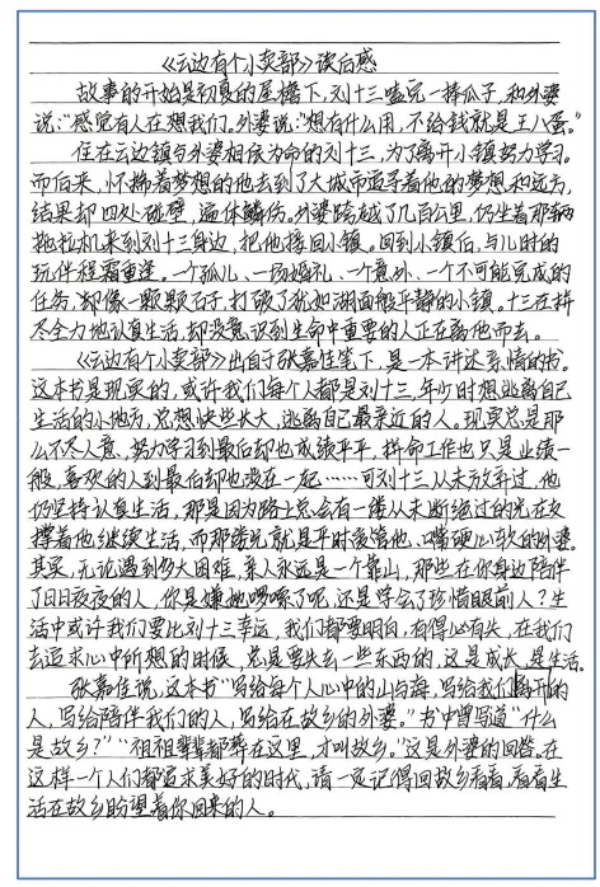 《云边有个小卖部》读后感
故事的开始是初夏的屋檐下,刘十三嗑完一捧瓜子,和外婆
说:“感觉有人在想我们。外婆说:“想有什么用,不给钱就是王八蛋。”
住在云边镇与外婆相依为命的刘十三,为了离开小镇努力学习。
而后来,怀揣着梦想的他去到了大城市追寻着他的梦想和远方,
结果却四处碰壁,遍体鳞伤。外婆跨越了几百公里,仍坐着那辆
拖拉机来到刘十三身边,把他接回小镇。回到小镇后,与儿时的
玩伴程霜重逢。一个孤儿、一场婚礼、一个意外、一个不可能完成的
任务,却像一颗颗石子,打破了犹如湖面般平静的小镇。十三在拼
尽全力地认真生活,却没意识到生命中重要的人正在离他而去。
《云边有个小卖部》出自于张嘉佳笔下,是一本讲述亲情的书。
这本书是现实的,或许我们每个人都是刘十三,年少时想逃离自己
生活的小地方,总想快些长大,逃离自己最亲近的人。现实总是那
么不尽人意,努力学习到最后却也成绩平平,拼命工作也只是业绩一
般,喜欢的人到最后却也没在一起……可刘十三从未放弃过,他
仍坚持认真生活,那是因为路上总会有一缕从未断绝过的光在支
撑着他继续生活,而那缕光就是平时爱管他、嘴硬心软的外婆。
其实,无论遇到多大困难,亲人永远是一个靠山,那些在你身边陪伴
了日日夜夜的人,你是嫌她啰嗦了呢,还是学会了珍惜眼前人?生
活中或许我们要比刘十三幸运,我们都要明白,有得必有失,在我们
去追求心中所想的时候,总是要失去一些东西的,这是成长,是生活。
张嘉佳说,这本书“写给每个人心中的山与海,写给我们离开的
人,写给陪伴我们的人,写给在故乡的外婆。”书中曾写道“什么
是故乡?”“祖祖辈辈都葬在这里,才叫故乡。”这是外婆的回答。在
这样一个人们都追求美好的时代,请一定记得回故乡看看,看看生
活在故乡盼望着你回来的人。